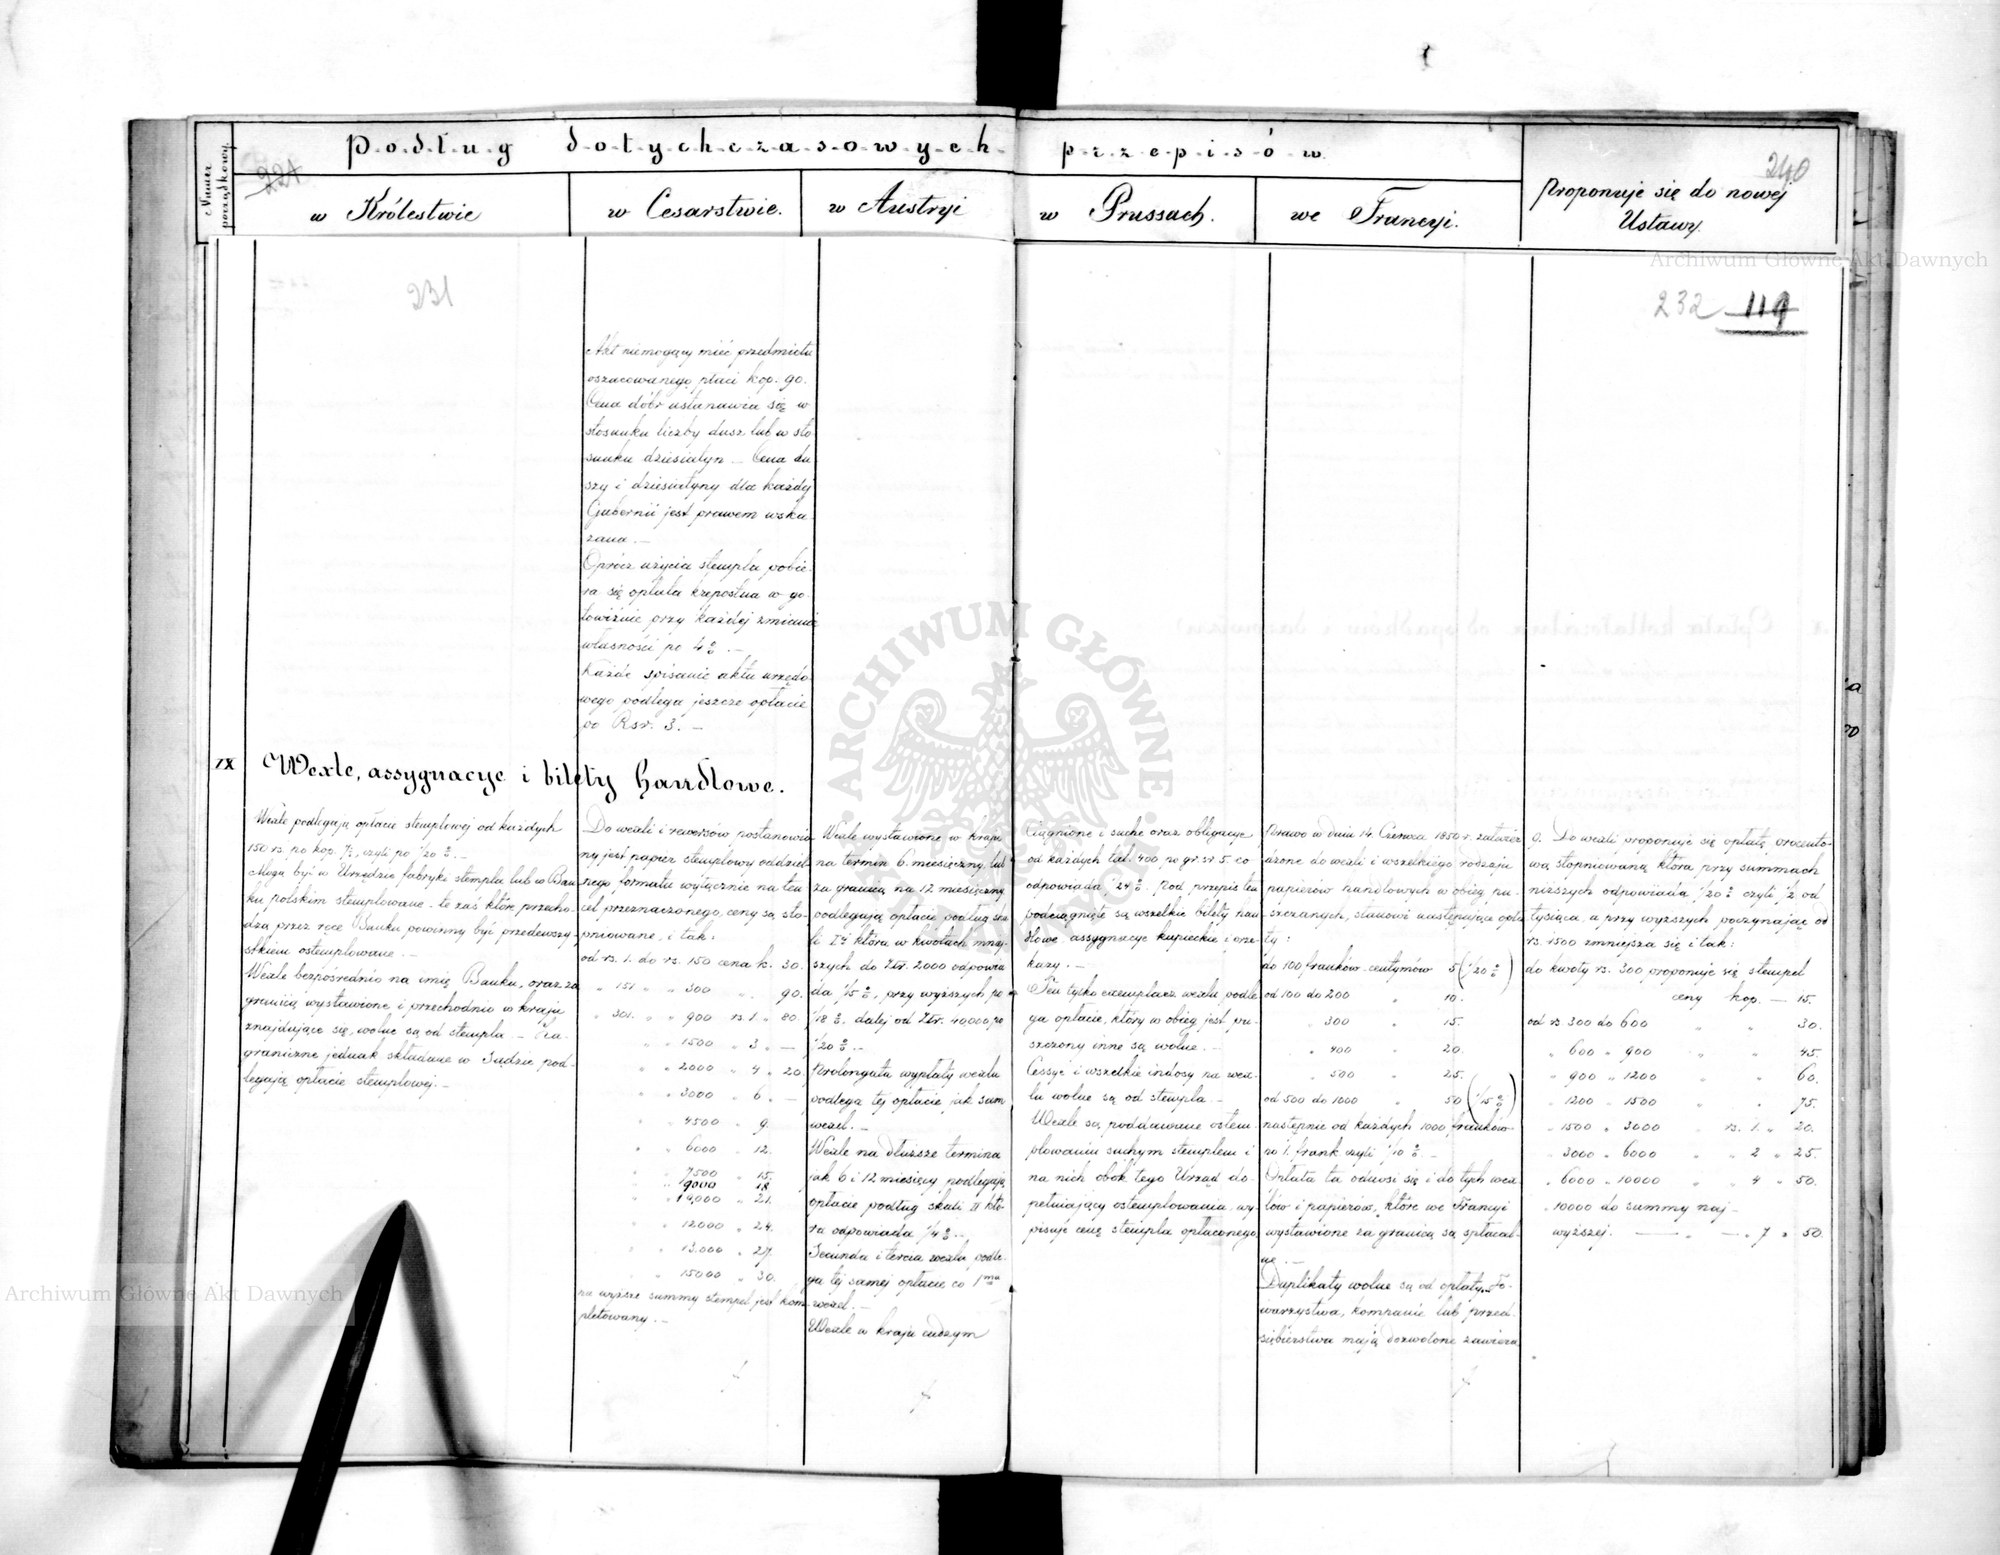 Numer porządkowy.
Podług dotychczasowych przepisów.
224
240
w Królestwie
w Cesarstwie.
w Austryi
w Prussach.
we Francyi.
Proponuje się do nowej
Ustawy.
231
232 119
Akt niemogący mieć przedmiotu
oszacowanego płaci kop. 90.
Cena dóbr ustanawia się w
stosunku liczby dusz lub w sto-
sunku dziesiatyn. — Cena du
szy i dziesiatyny dla każdej
Gubernii jest prawem wska-
zana. —
Oprócz użycia stempla pobie-
ra się opłata krepostna w go-
towiźnie przy każdej zmianie
własności po 4%. —
Każde spisanie aktu urzędo-
wego podlega jeszcze opłacie
po Rsr. 3. —
IX Wexle, assygnacye i bilety handlowe.
Wexle podlegają opłacie stemplowej od każdych
150 rs. po kop. 7½, czyli po 1/20 %. —
Mogą być w Urzędzie fabryki stempla lub w Ban
ku polskim stemplowane - te zaś które przecho-
dzą przez ręce Banku powinny być przedewszy-
stkiem ostemplowane. —
Wexle bezpośrednio na imię Banku, oraz za
granicą wystawione i przechodnio w kraju
znajdujące się, wolne są od stempla. — Za-
graniczne jednak składane w Sądzie pod-
legają opłacie stemplowej. —
Do wexli i rewersów postanowio-
ny jest papier stemplowy oddziel-
nego formatu wyłącznie na ten
cel przeznaczonego, ceny są sto-
pniowane, i tak:
od rs. 1. do rs. 150 cena k. 30.
" 151 " " 300 " 90.
" 301. " " 900 rs. 1. " 80
" " 1500 " 3 " —
" " 2000 " 4 " 20.
" " 3000 " 6. —
" " 4500 " 9.
" " 6000 " 12.
" " 7500 " 15.
" " 9000 " 18
" " 10,000 " 21.
" " 12000 " 24.
" " 13.000 " 27.
" " 15000 " 30.
na wyższe summy stempel jest kom-
pletowany. —
Wexle wystawione w kraju
na termin 6. miesięczny, lub
za granicą na 12 miesięczny
podlegają opłacie podług ska
li I<sup>éj</sup> która w kwotach mniej-
szych do Złr. 2000 odpowia
da 1/15 %, przy wyższych po
1/18 %. dalej od Złr. 40,000 po
1/20 %. —
Prolongata wypłaty wexlu
podlega tej opłacie jak sam
wexel. —
Wexle na dłuższe termina
jak 6 i 12 miesięcy podlegają
opłacie podług skali II któ-
ra odpowiada 1/4 %. —
Secunda i tercia wexla podle-
ga tej samej opłacie co 1<sup>ma</sup>
wexel. —
Wexle w kraju cudzym
Ciągnione i suche oraz obligacye
od każdych tal. 400 po gr. sr. 5. co
odpowiada 1/24 %. Pod przepis ten
podciągnięte są wszelkie bilety han
dlowe, assygnacye kupieckie i prze-
kazy. —
Ten tylko exemplarz wexlu podle
ga opłacie, który w obieg jest pu-
szczony inne są wolne. —
Cessye i wszelkie indosy na wex-
lu wolne są od stempla. —
Wexle są poddawane ostem-
plowaniu suchym stemplem i
na nich obok tego Urząd do-
pełniający ostemplowania, wy-
pisuje cenę stempla opłaconego.
Prawo w dniu 14. Czerwca 1850 r. zatwier
dzone do wexli i wszelkiego rodzaju
papierów handlowych w obieg pu-
szczanych, stanowi następujące opła
ty:
do 100 franków centymów 5 (1/20 %)
od 100 do 200 " 10.
" 300 " 15.
" 400 " 20.
" 500 " 25.
od 500 do 1000 " 50 (1/15 %)
następnie od każdych 1000 franków
po 1. frank czyli 1/10 %. —
Opłata ta odnosi się i do tych wex
lów i papierów, które we Francyi
wystawione za granicą są spłacal-
ne. —
Duplikaty wolne są od opłaty. To-
warzystwa, kompanie lub przed-
siębierstwa mają dozwolone zawiera
9. Do wexli proponuje się opłatę procento-
wą stopniowaną która przy summach
niższych odpowiada 1/20 % czyli ½ od
tysiąca, a przy wyższych poczynając od
rs. 1500 zmniejsza się i tak:
do kwoty rs. 300 proponuje się stempel
ceny kop. — 15.
od rs 300 do 600 " " 30.
" 600 " 900 " " 45.
" 900 " 1200 " " 60.
" 1200 " 1500 " " 75.
" 1500 " 3000 " rs. 1. " 20.
" 3000 " 6000 " " 2 " 25.
" 6000 " 10000 " " 4 " 50.
" 10000 do summy naj-
wyższej. — " — " 7 " 50.
Archiwum Główne Akt Dawnych
Archiwum Główne Akt Dawnych
ARCHIWUM GŁÓWNE AKT DAWNYCH